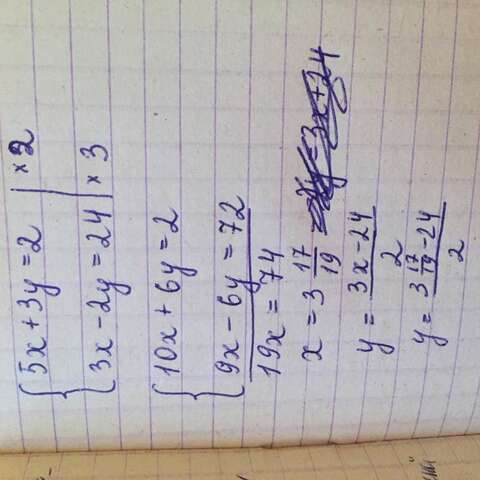 {5x + 3y = 2 | × 2
{3x - 2y = 24 | × 3
{10x + 6y = 2
{9x - 6y = 72
19x = 74
x = 3 17/19
y = (3x - 24)/2
y = (3 17/19 - 24)/2